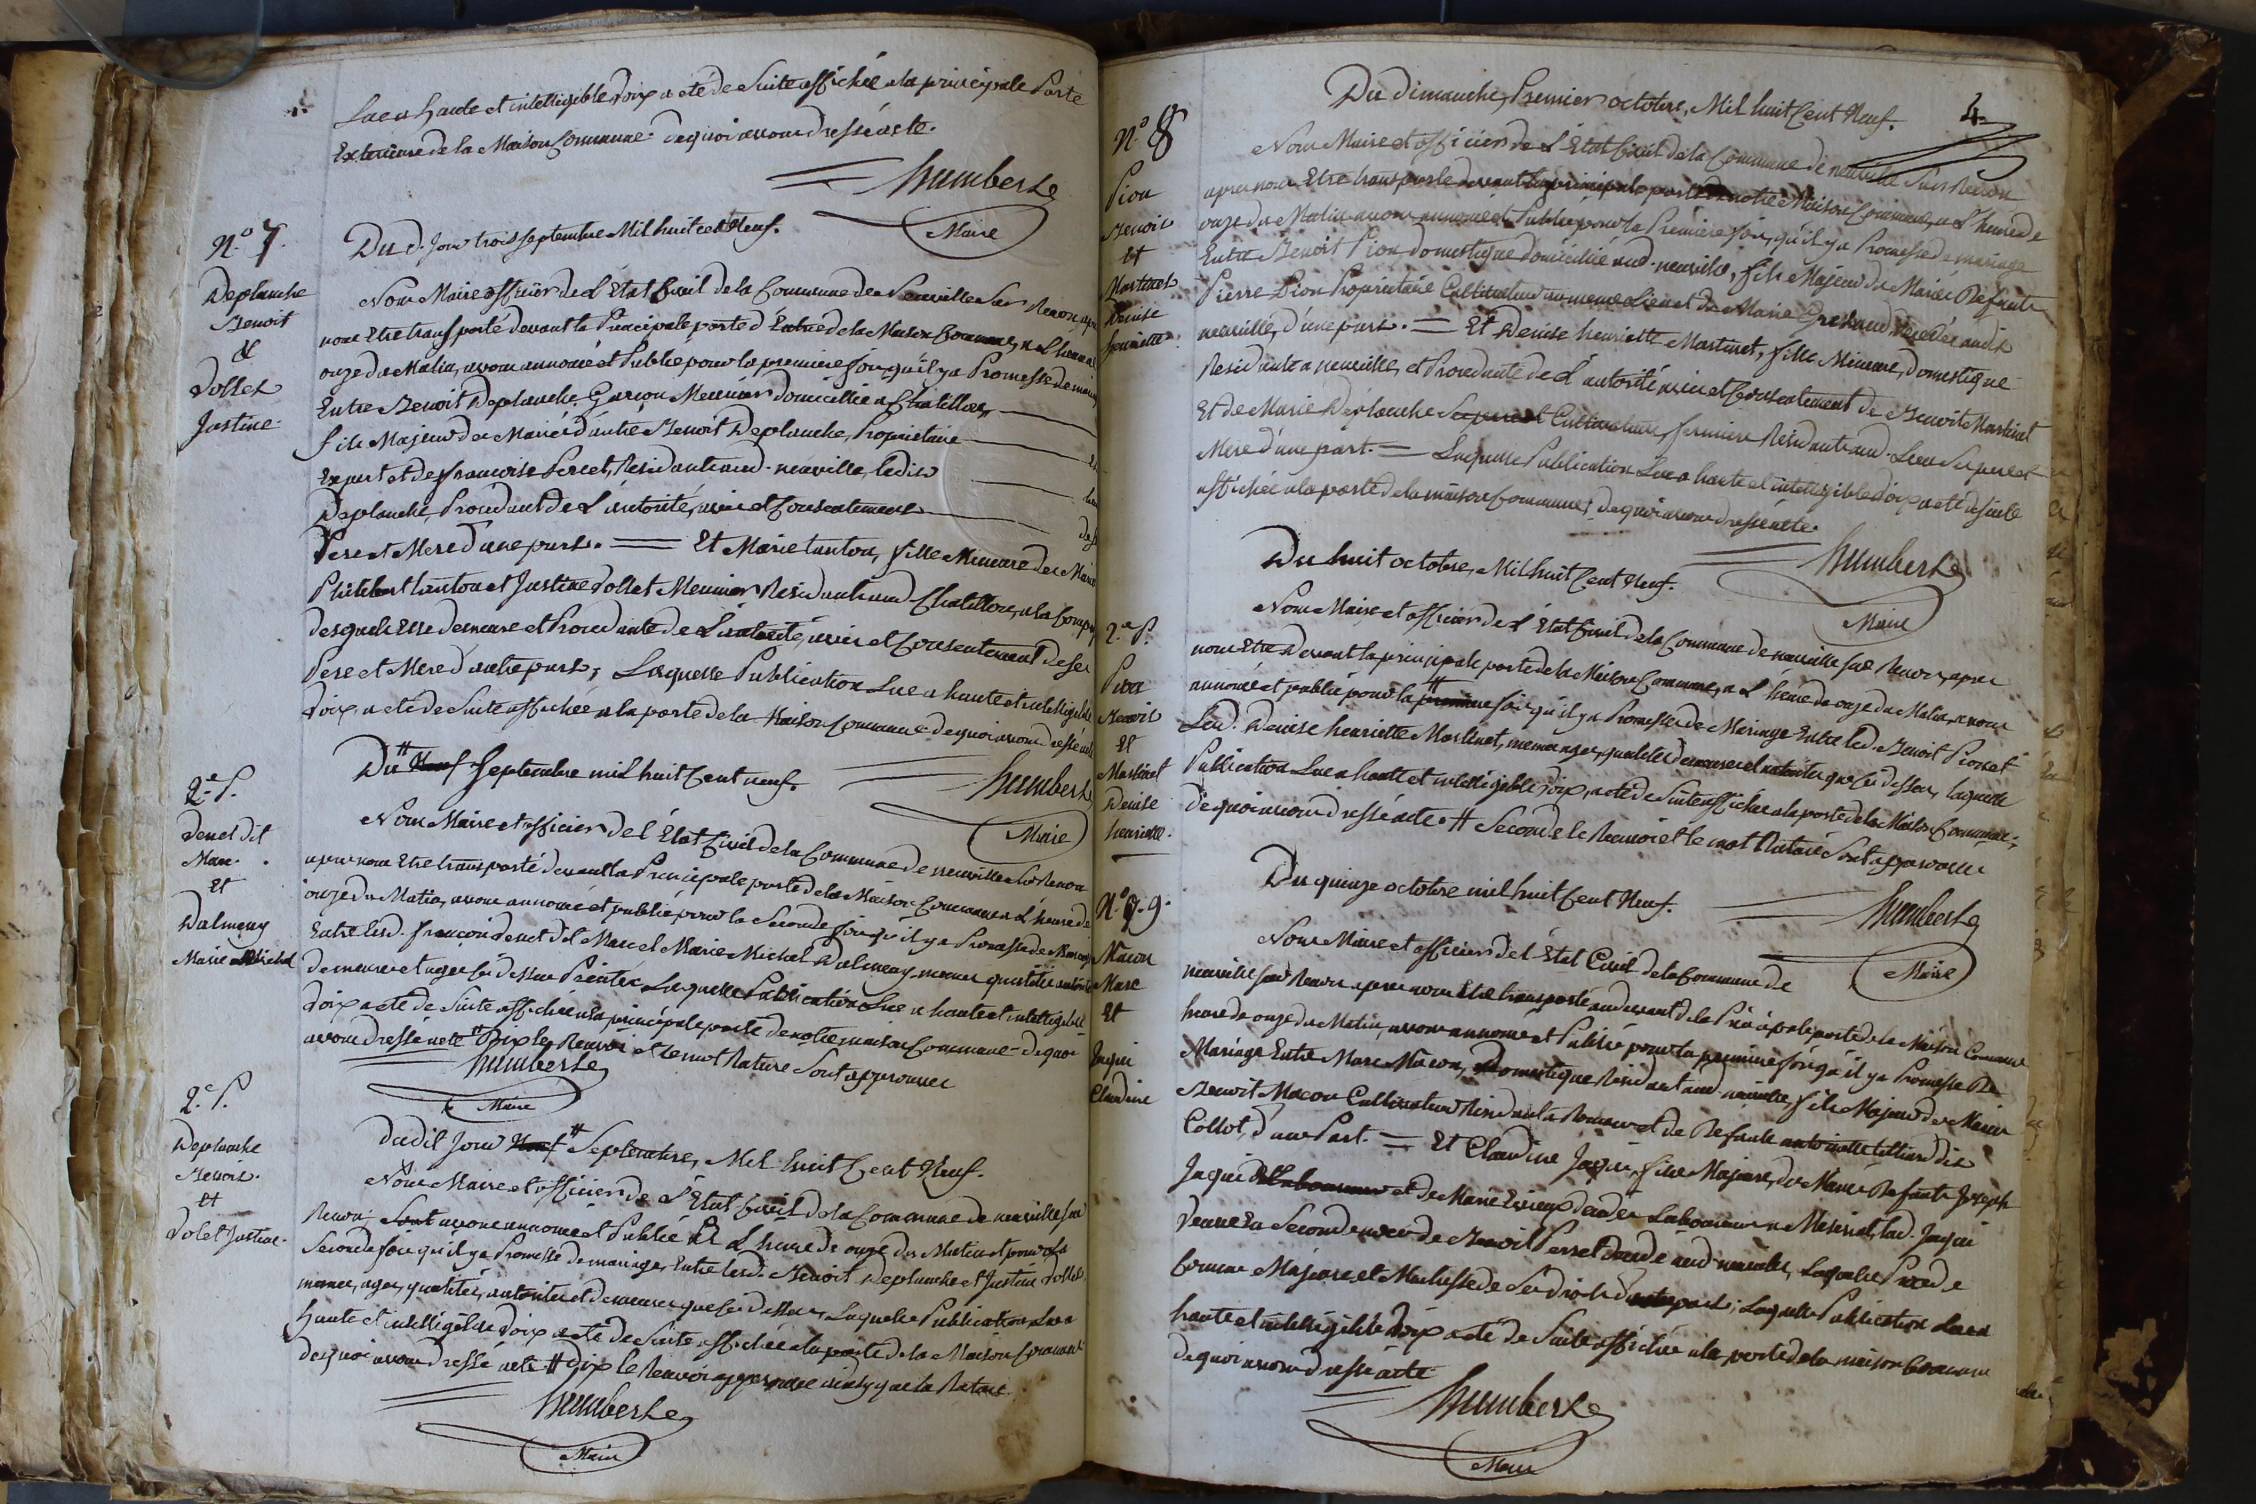 Lue a haute et intelligible voix a eté de Suite affichée a la principale Porte
Exterieure de la Maison Commune dequoi avons dressé acte.
humbert
Maire
N.º 7.
Deplanche
Benoit
&
Vollet
Justine
Du d. Jour trois Septembre Mil huit cent Neuf.
Nous Maire officier de L'Etat Civil de la Commune de Neuville Sur Renon, apres
nous Etre transporté devant la Principale porte d'Entrée de la Maison Commune, a L'heure de
onze du Matin, avons annoncé et Publié pour la premiere fois qu'il y a Promesse de mariage
Entre Benoit Deplanche Garçon Meunier domicillié a Chatillon,
fils Majeur de Mariés d'autre Benoit Deplanche, Propriétaire
Expert et de francoise Perret, Residants aud. neuville, ledit
Deplanche, Procedant de L'autorité, avis et Consentement
Pere et Mere d'une part. = Et Marie tanton, fille Mineure des Mariés
Philibert tanton et Justine Vollet Meunier Residants aud Chatillon, a la Compagnie
desquels Elle demeure et Procedante de L'autorité, avis et Consentement de Ses
Pere et Mere d'autre part; Laquelle Publication Lue a haute et intelligible
Voix, a eté de Suite affichée a la porte de la Maison Commune dequoi avons dressé acte
humbert
Maire
2.e P.
Venet dit
Marc
Et
Dalmeny
Marie Michel
Du # Neuf Septembre mil huit Cent neuf.
Nous Maire et officier de l'État Civil de la Commune de neuville Sur Renon
apres nous Etre transporté devant la Principale porte de la Maison Commune a L'heure de
onze du Matin, avons annoncé et publié pour la Seconde fois qu'il y a Promesse de Mariage
Entre lesd. françois Venet dit Marc et Marie Michel Dalmeny, memes qualités autorités
demeures et ages Ci dessus Laquelle Publication Lue a haute et intelligible
Voix a eté de Suite affichée a la principale porte de notre maison Commune - dequoi
avons dressé acte # Dix le Renvoi et le mot Raturé Sont approuvés
humbert
Maire
2.e P.
Deplanche
Benoit
Et
Volet Justine
Dudit Jour Neuf # Septembre, Mil huit Cent Neuf.
Nous Maire et officier de L'Etat Civil de la Commune de neuville Sur
Renon, avons annoncé et Publié A L'heure de onze du Matin et pour la
Seconde fois qu'il y a Promesse de mariage, Entre lesd. Benoit Deplanche et Justine Vollet
memes, ages, qualités, autorités et demeures que Ci dessus, Laquelle Publication Lue a
haute et intelligible Voix a eté de Suite affichée a la porte de la Maison Commune
dequoi avons dressé acte # Dix le Renvoi approuvé ainsy que la Rature.
humbert
Maire
4
N.º 8
Pion
Benoit
Et
Martinet
Denise
henriette
Du dimanche, Premier octobre, Mil huit Cent Neuf.
Nous Maire et officier de L'Etat Civil de la Commune de neuville Sur Renon
apres nous Etre transporté devant la principale porte de notre Maison Commune, a L'heure de
onze du Matin avons annoncé et Publié pour la Premiere fois, qu'il y a Promesse de mariage
Entre Benoit Pion domestique domicilié aud. neuville, fils Majeur de Mariés Defunts
Pierre Pion Propriétaire Cultivateur au meme Lieu et de Marie decedés audit
neuville, d'une part. = Et Denise henriette Martinet, fille Mineure, domestique
Residante a neuville, et Procedante de L'autorité avis et Consentement de Benoit Martinet
Et de Marie Deplanche Cultivateurs, fermiers Residants aud. Lieu Ses pere et
Mere d'une part. = Laquelle Publication Lue a haute et intelligible Voix, a eté de Suite
affichée a la porte de la maison Commune; dequoi avons dressé acte.
humbert
Maire
2.e P.
Pion
Benoit
Et
Martinet
Denise
henriette.
Du huit octobre, Mil huit Cent Neuf.
Nous Maire et officier de L'Etat Civil de la Commune de neuville Sur Renon, apres
nous Etre devant la principale porte de la Maison Commune, a L'heure de onze du Matin, avons
annoncé et publié pour la # premiere fois qu'il y a Promesse de Mariage Entre led. Benoit Pion et
Lad. Denise henriette Martinet, memes ages, qualités demeures et autorités que Ci dessus, laquelle
Publication Lue a haute et intelligible Voix, a eté de Suite affichée a la porte de la Maison Commune;
dequoi avons dressé acte # Seconde le Renvoi et le mot Raturé Sont approuvés
humbert
Maire
N.º 9.
Macon
Marc
Et
Jaqui
Claudine
Du quinze octobre mil huit Cent Neuf.
Nous Maire et officier de L'État Civil de la Commune de
neuville Sur Renon apres nous Etre transporté au devant de la Principale porte de la Maison Commune
heure de onze du Matin, avons annoncé et Publié pour la premiere fois qu'il y a Promesse De
Mariage Entre Marc Macon, Domestique Residant aud. neuville, fils Majeur de Mariés
Benoit Macon Cultivateur Residant a et de Defunte antoinette dit
Collot, d'une Part. = Et Claudine Jaqui, fille Majeure, de Mariés Defunts Joseph
Jaqui et de Marie decedés Laboureurs a Mezeriat, lad. Jaqui
Veuve En Secondes de Benoit Perret decedé aud neuville, Laquelle Procede
Comme Majeure et Maitresse de Ses droits d'autre part; Laquelle Publication Lue a
haute et intelligible Voix a eté de Suite affichée a la porte de la maison Commune
dequoi avons dressé acte
humbert
Maire